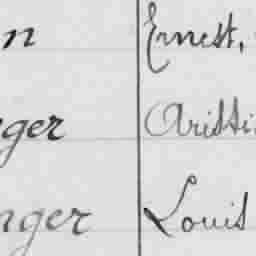 n Ernest,
ger Aristi
nger Louis